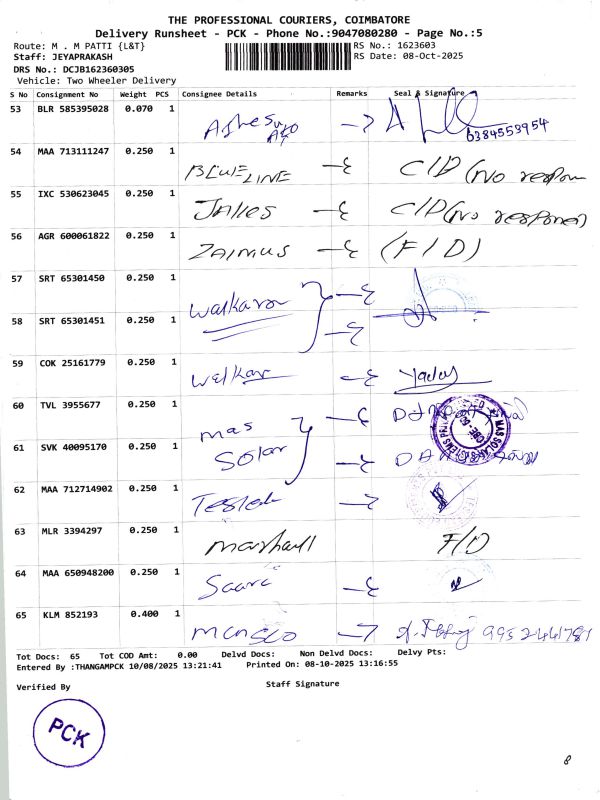 THE PROFESSIONAL COURIERS, COIMBATORE
Delivery Runsheet - PCK - Phone No.:9047080280 - Page No.:5
Route: M . M PATTI {L&T} RS No.: 1623603
Staff: JEYAPRAKASH RS Date: 08-Oct-2025
DRS No.: DCJB162360305
Vehicle: Two Wheeler Delivery
S No Consignment No Weight PCS Consignee Details Remarks Seal & Signature
53 BLR 585395028 0.070 1 6384553954
54 MAA 713111247 0.250 1 BLUE LINE C/D (No respon
55 IXC 530623045 0.250 1 C/D (No response)
56 AGR 600061822 0.250 1 ZAIMUS (F/D)
57 SRT 65301450 0.250 1 Walkaroo
58 SRT 65301451 0.250 1
59 COK 25161779 0.250 1 Walkar Yadav
60 TVL 3955677 0.250 1 mas
61 SVK 40095170 0.250 1 Solar
62 MAA 712714902 0.250 1
63 MLR 3394297 0.250 1 Marshall F/D
64 MAA 650948200 0.250 1
65 KLM 852193 0.400 1
Tot Docs: 65 Tot COD Amt: 0.00 Delvd Docs: Non Delvd Docs: Delvy Pts:
Entered By :THANGAMPCK 10/08/2025 13:21:41 Printed On: 08-10-2025 13:16:55
Verified By Staff Signature
PCK
8